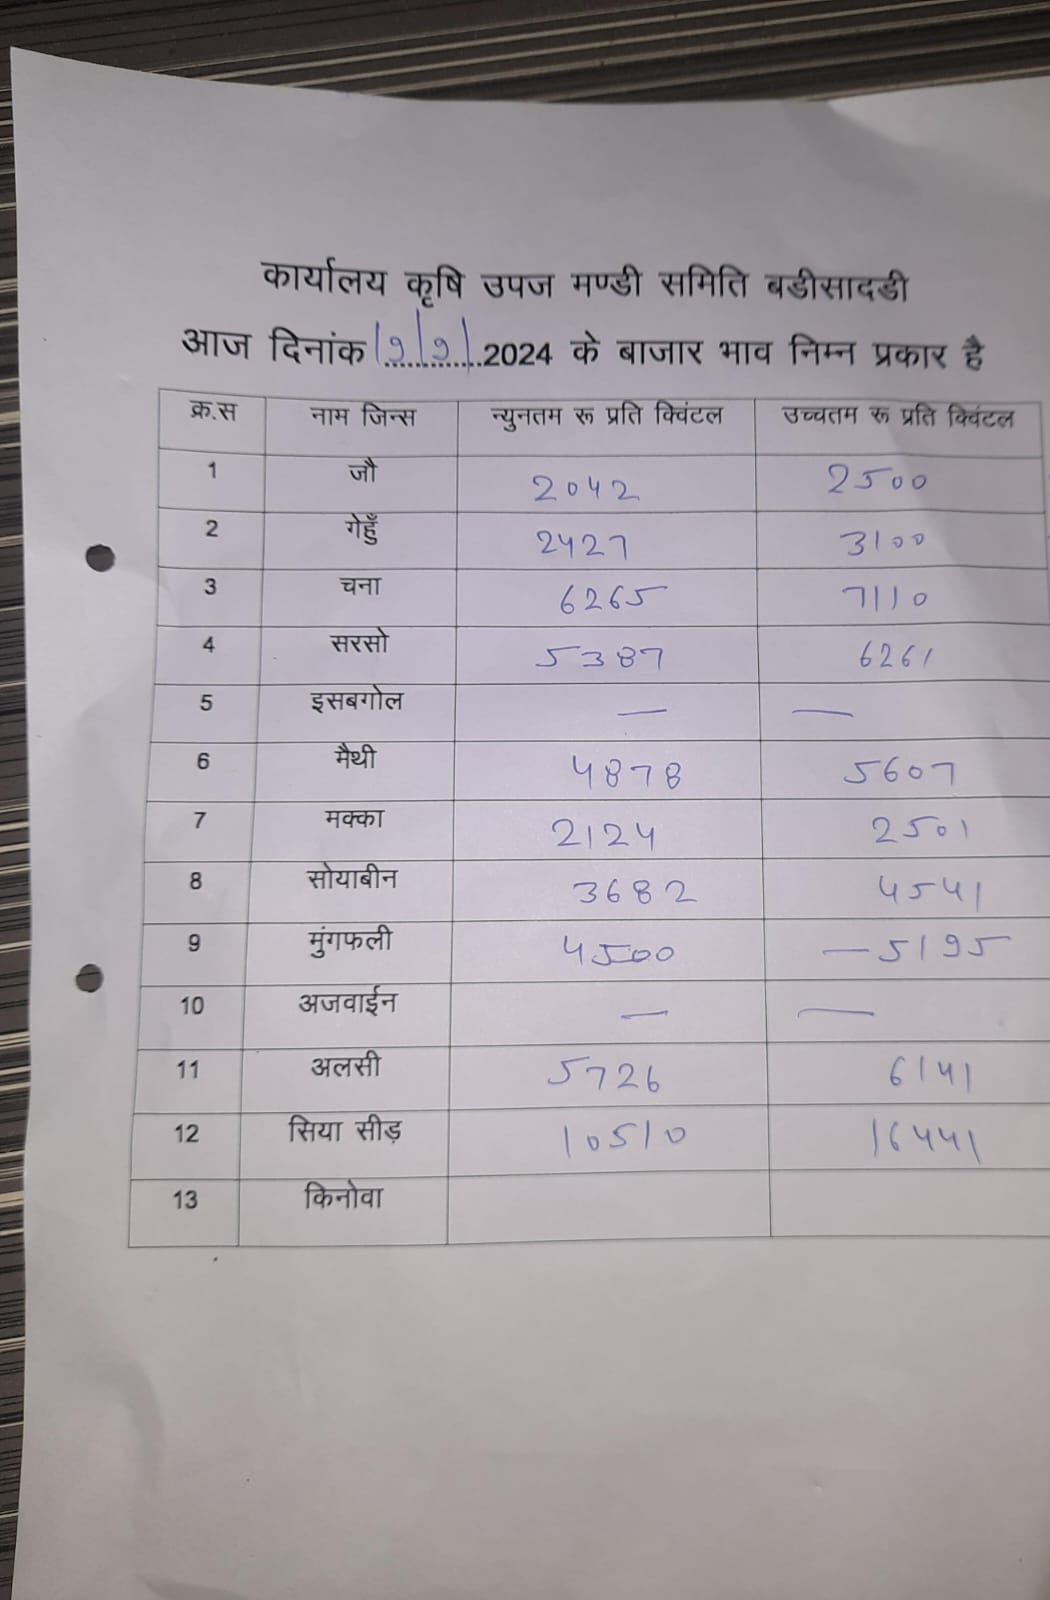 कार्यालय कृषि उपज मण्डी समिति बडीसादडी
आज दिनांक 19/9/2024 के बाजार भाव निम्न प्रकार है
क्र.स नाम जिन्स न्युनतम रू प्रति क्विंटल उच्चतम रू प्रति क्विंटल
1 जौ 2042 2500
2 गेहुँ 2427 3100
3 चना 6265 7110
4 सरसो 5387 6261
5 इसबगोल — —
6 मैथी 4878 5607
7 मक्का 2124 2501
8 सोयाबीन 3682 4541
9 मुंगफली 4500 — 5195
10 अजवाईन — —
11 अलसी 5726 6141
12 सिया सीड़ 10510 16441
13 किनोवा